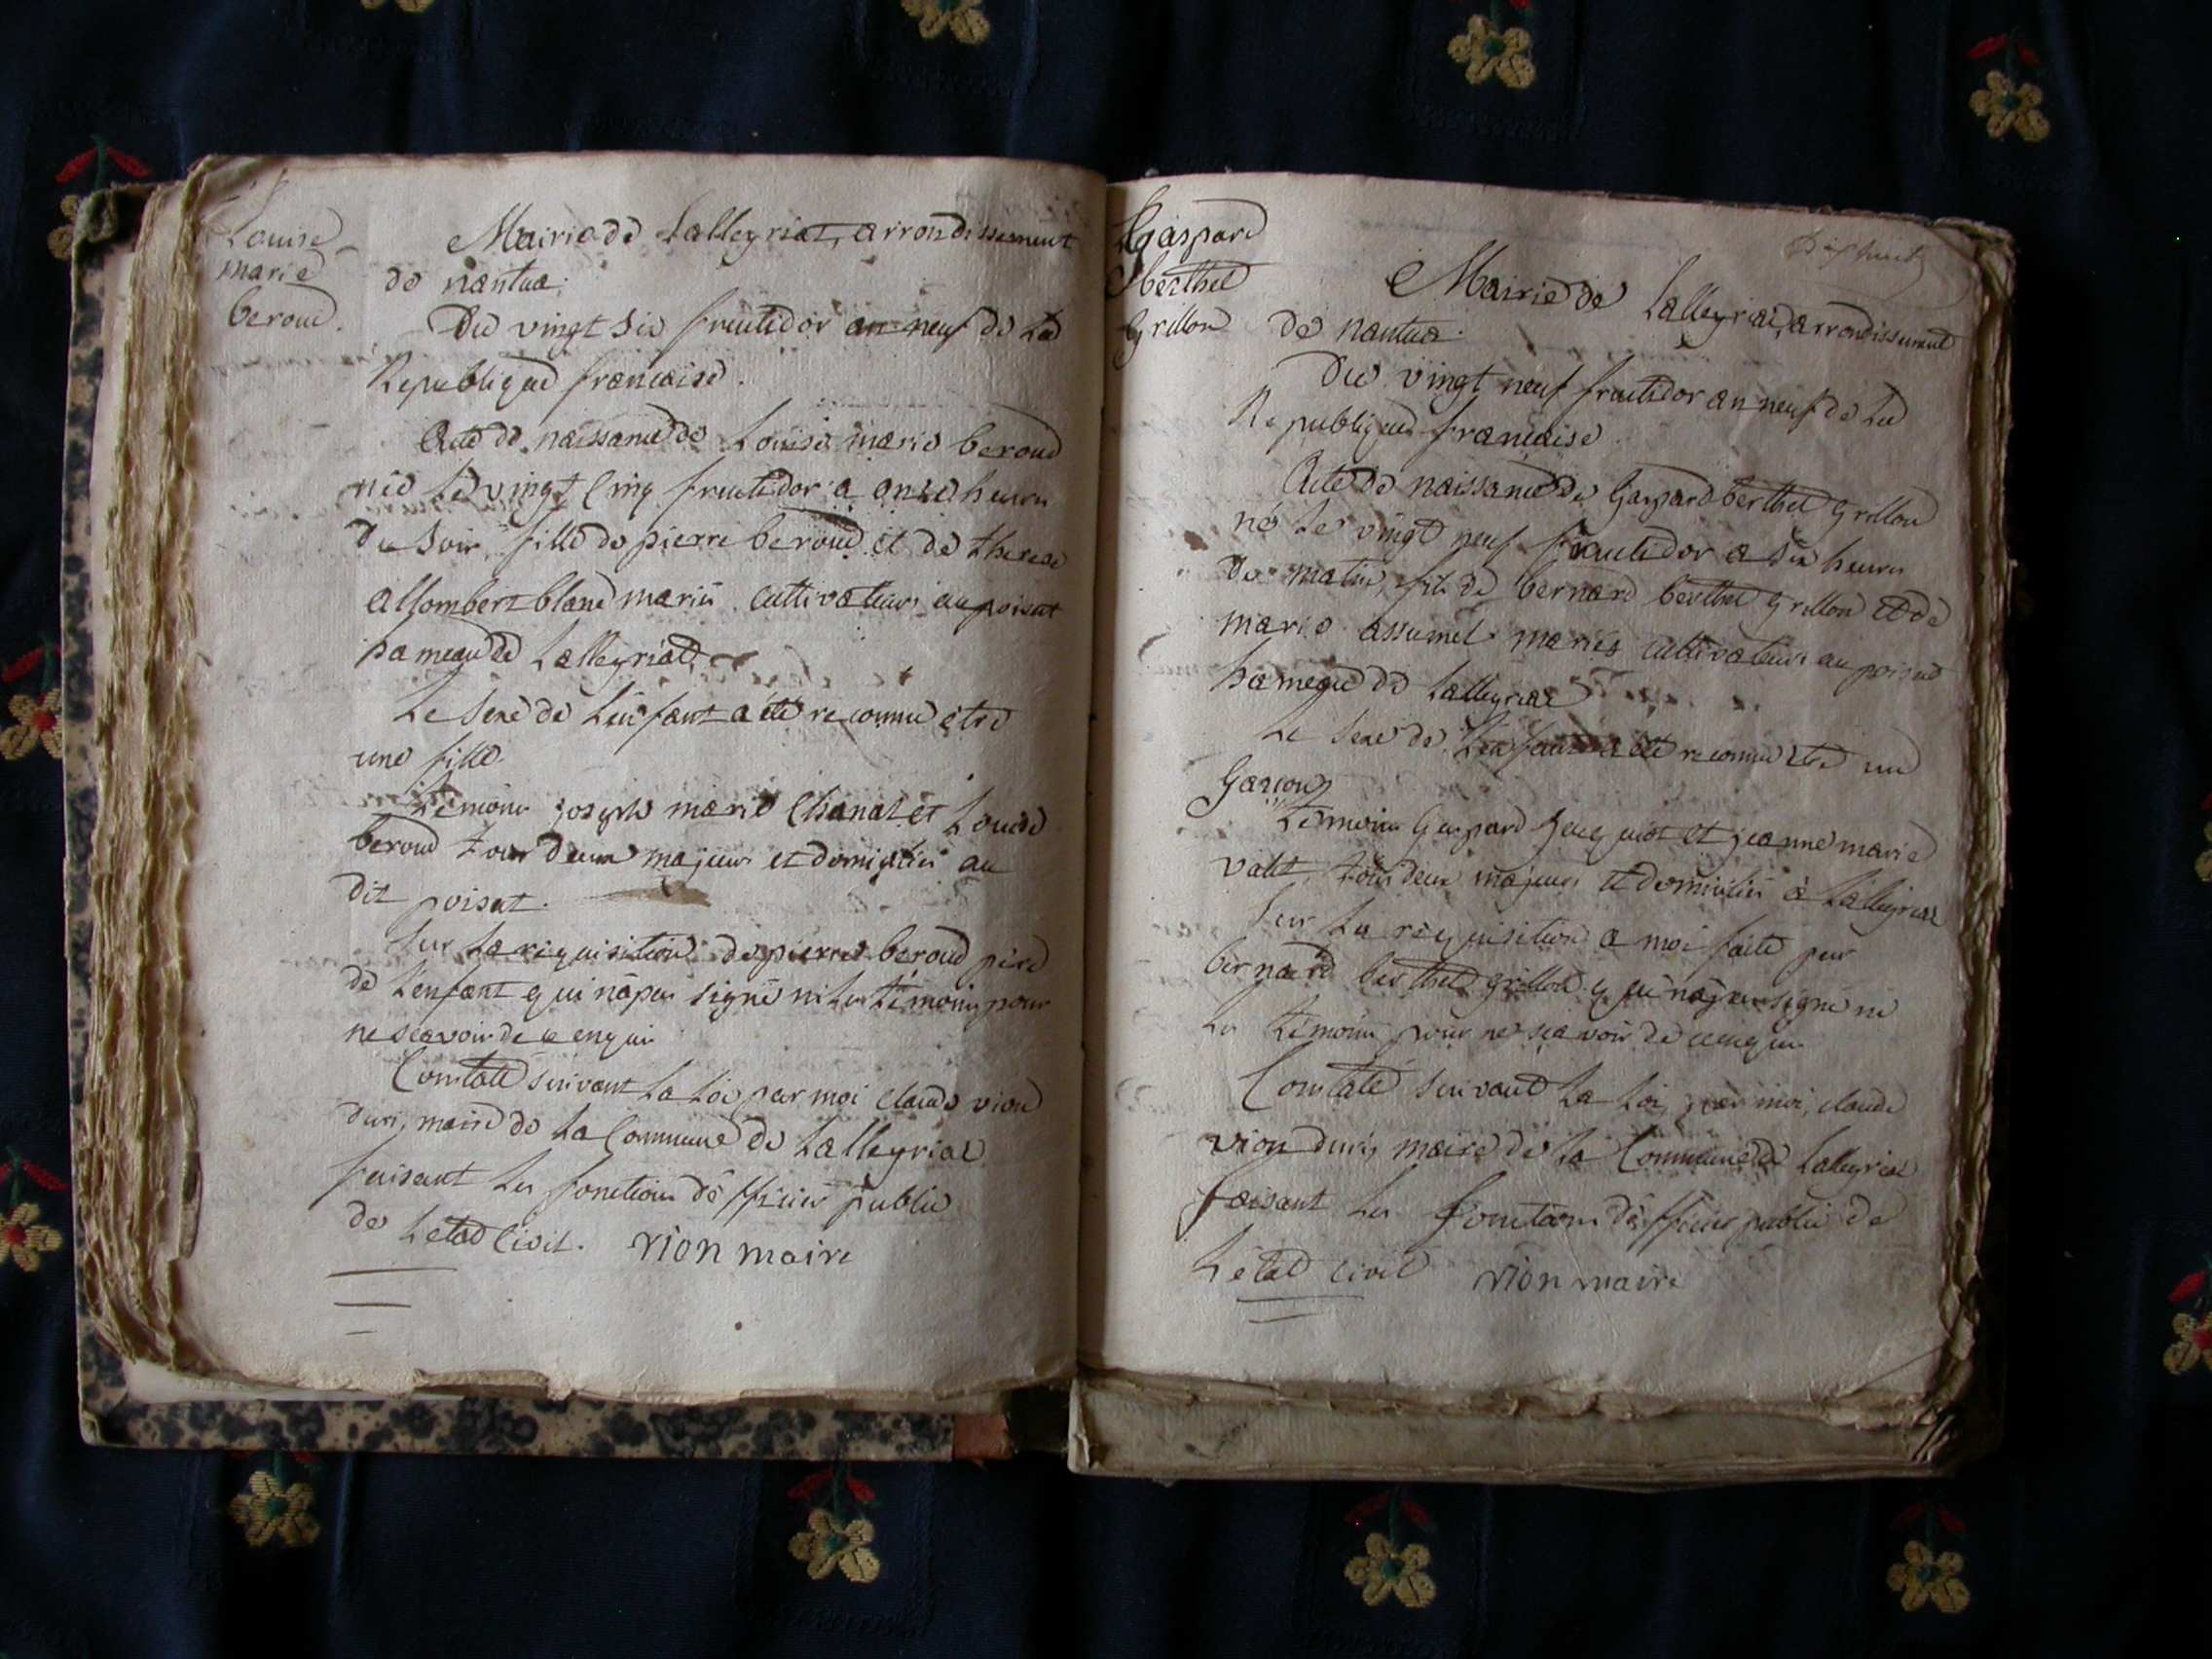 Louise
marie
beroud.
Mairie de Lalleyriat, arrondissement
de nantua.
Du vingt six fructidor an neuf de La
Republique francaise.
Acte de naissance de Louise marie beroud
née le vingt Cinq fructidor a onze heures
du soir, fille de pierre beroud et de therese
allombert blanc mariés cultivateurs au poisat
hameau de Lalleyriat.
Le sexe de Lenfant a été reconnu etre
une fille.
Témoins joseph marie Chanal et Louise
beroud tous deux majeurs et domiciliés au
dit poisat.
Sur La requisition de pierre beroud père
de L'enfant qui n'a peu signé ni Les témoins pour
ne scavoir de ce enquis
Constaté suivant La Loi par moi claude vion
duri, maire de La Commune de Lalleyriat
faisant Les fonctions d'officier public
de Letat Civil. vion maire
Gaspard
berthet
Grillon
Dix huit
Mairie de Lalleyriat, arrondissement
de nantua.
Du vingt neuf fructidor an neuf de La
Republique francaise.
Acte de naissance de Gaspard berthet Grillon
né Le vingt neuf fructidor a six heures
du matin, fils de bernard berthet Grillon et de
marie assumel mariés cultivateurs au poisat
hameau de Lalleyriat
Le sexe de Lenfant a été reconnu etre un
Garcon
Témoins Gaspard Jacquiot et jeanne marie
tous deux majeurs et domiciliés à Lalleyriat
Sur La requisition a moi faite par
bernard berthet grillon qui n'a peu signé ni
Les témoins pour ne scavoir de ce enquis
Constaté suivant La Loi, par moi, claude
vion duri, maire de La Commune de Lalleyriat
faisant Les fonctions d'officier public de
L'état civil vion maire